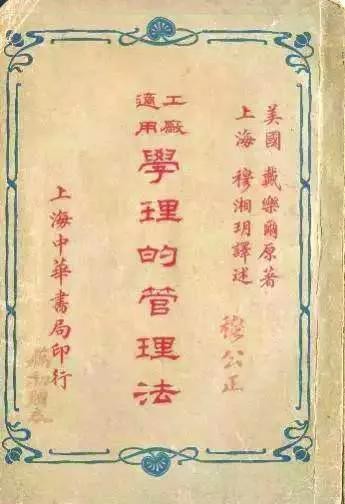 美國 戴樂爾原著
上海 穆湘玥譯述
穆公正
工廠
適用
學理的管理法
上海中華書局印行